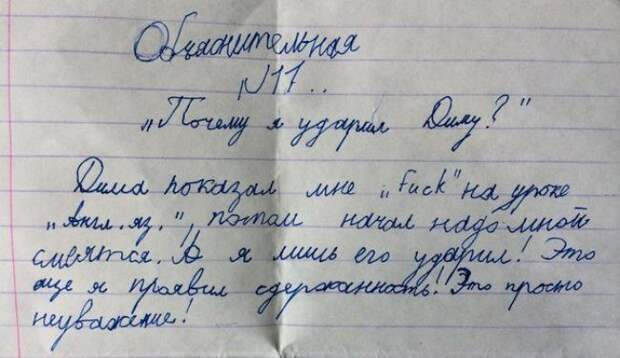 Объяснительная
N 17..
"Почему я ударил Диму?"
Дима показал мне "Fuck" на уроке
"Англ. яз.", потом начал надо мной
смеятся. А я лишь его ударил! Это
ище я проявил сдержанность! Это просто
неуважение!